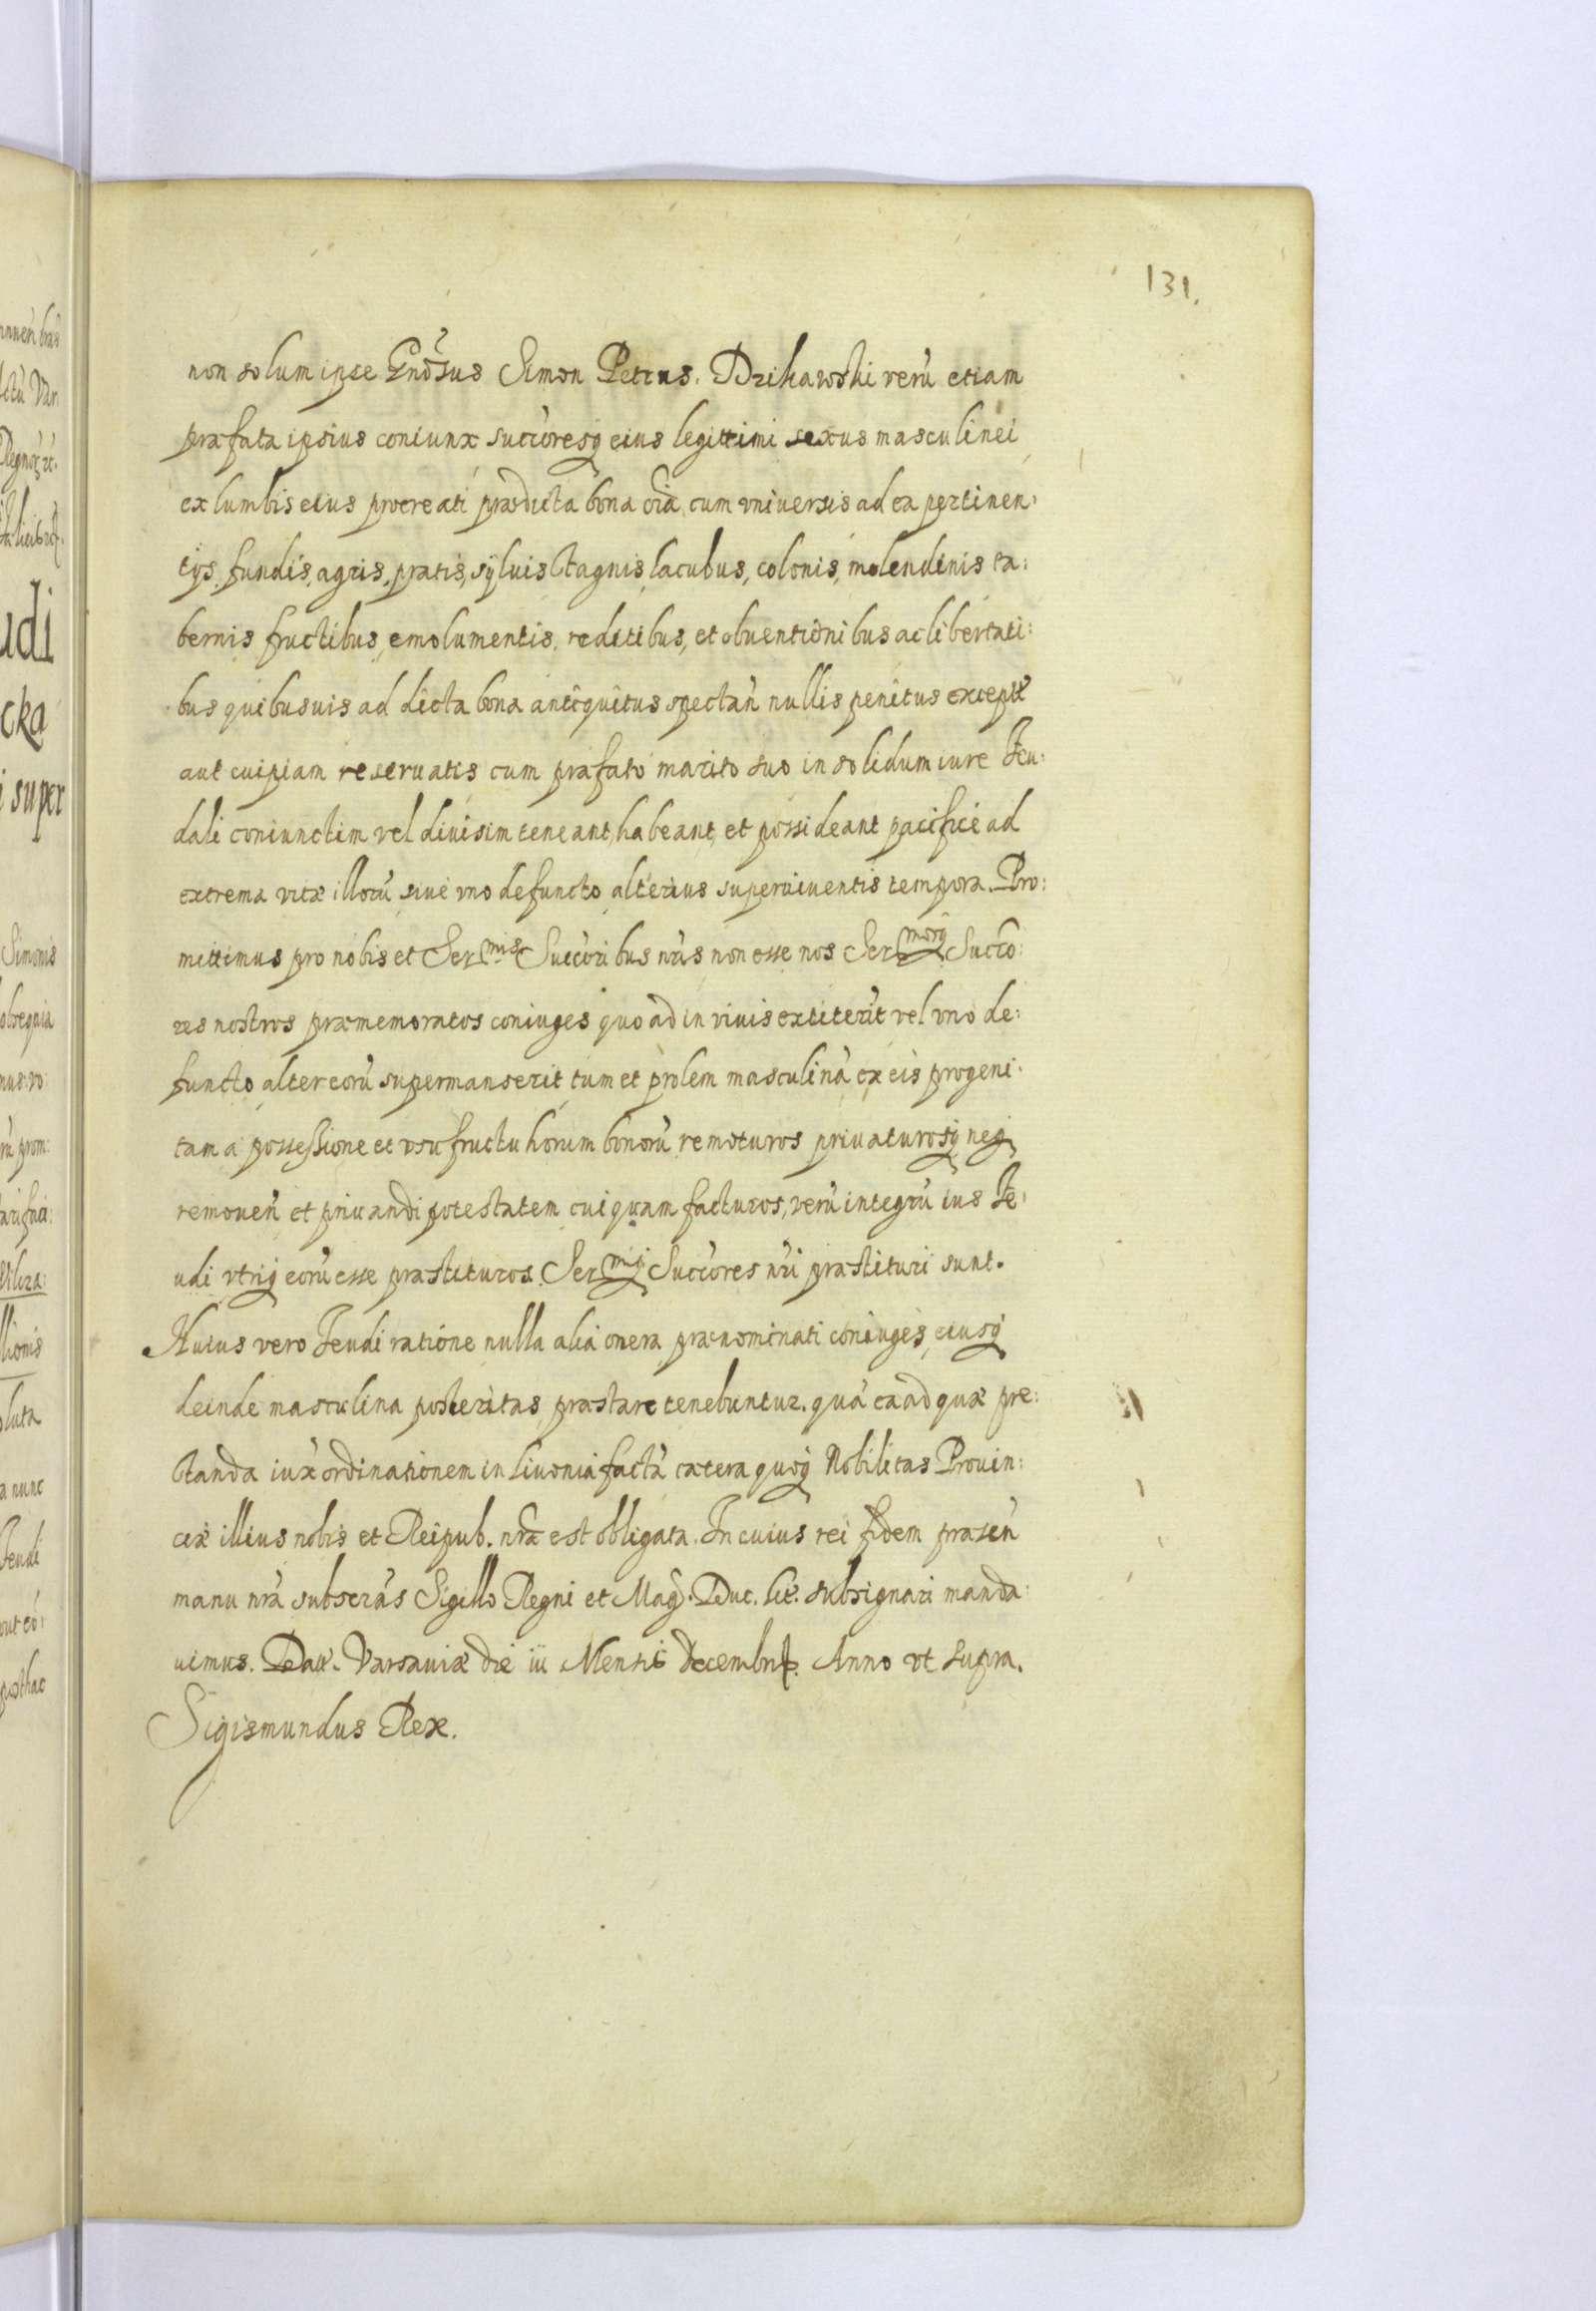 131.
non solum ipse Gnosus Simon Petrus Dzikawski verũ etiam
præfata ipsius coniunx succoresq eius legittimi sexus masculinei
ex lumbis eius procreati prædicta bona oia cum vniuersis ad ea pertinen:
tÿs, fundis, agris, pratis, syluis stagnis, lacubus, colonis, molendinis ta:
bernis fructibus, emolumentis, reditibus, et obuentionibus ac libertati:
bus quibusuis ad dicta bona antiquitus spectan nullis penitus except
aut cuipiam reseruatis cum præfato marito suo in solidum iure feu:
dali coniunctim vel diuisim teneant, habeant, et possideant pacificè ad
extrema vitæ illorũ siue vno defuncto alterius superuiuentis tempora. Pro:
mittimus pro nobis et Sermis Succoribus nris non esse nos Sermosq Succo:
res nostros præmemoratos coniuges quoad in viuis extiterit vel vno de:
functo alter eorũ supermanserit tum et prolem masculinã ex eis progeni:
tam a possessione et vsufructu horum bonorũ remoturos priuaturosq neq
remouen et priuandi potestatem cuiquam facturos, verũ integrũ ius Fe:
udi vtriq eorũ esse præstituros. Sermiq Succores nri præstituri sunt.
Huius vero Feudi ratione nulla alia onera prænominati coniuges, eiusq
deinde masculina posteritas præstare tenebuntur. quã ea ad quæ pre:
standa iux ordinationem in Liuonia factã cætera quoq Nobilitas Prouin:
ciæ illius nobis et Reipub. nræ est obligata. In cuius rei fidem præsen
manu nrã subscras Sigillo Regni et Mag. Duc. Lit. subsignari manda:
uimus. Datt. Varsauiæ die iii Mensis Decembris. Anno vt supra.
Sigismundus Rex.